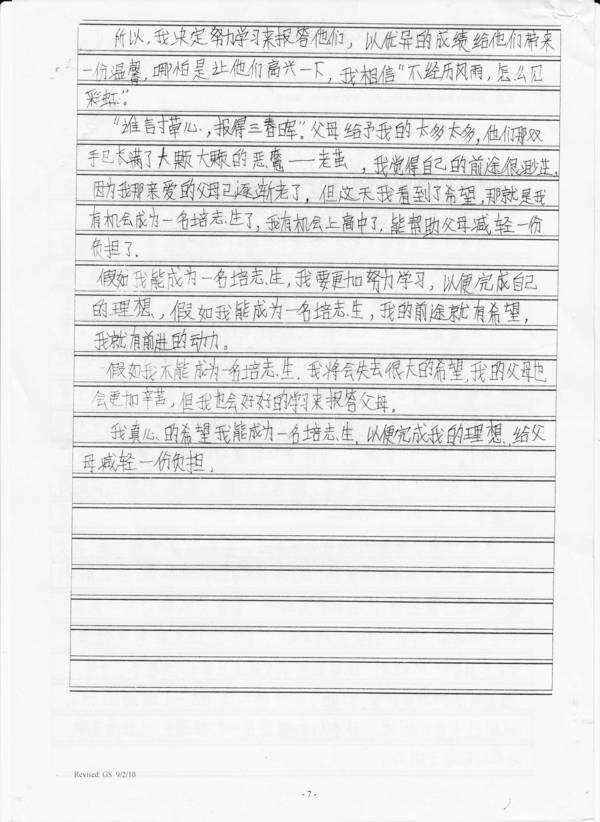 所以,我决定努力学习来报答他们,以优异的成绩给他们带来
一份温馨,哪怕是让他们高兴一下,我相信“不经历风雨,怎么见
彩虹”。
“谁言寸草心,报得三春晖”。父母给予我的太多太多,他们那双
手已长满了大颗大颗的恶魔——老茧,我觉得自己的前途很渺茫,
因为我那亲爱的父母已逐渐老了,但这天我看到了希望,那就是我
有机会成为一名培志生了,我有机会上高中了,能帮助父母减轻一份
负担了。
假如我能成为一名培志生,我要更加努力学习,以便完成自己
的理想、假如我能成为一名培志生,我的前途就有希望,
我就有前进的动力。
假如我不能成为一名培志生,我将会失去很大的希望,我的父母也
会更加辛苦,但我也会好好的学习来报答父母。
我真心的希望我能成为一名培志生,以便完成我的理想、给父
母减轻一份负担.
Revised: GS 9/2/10
- 7 -